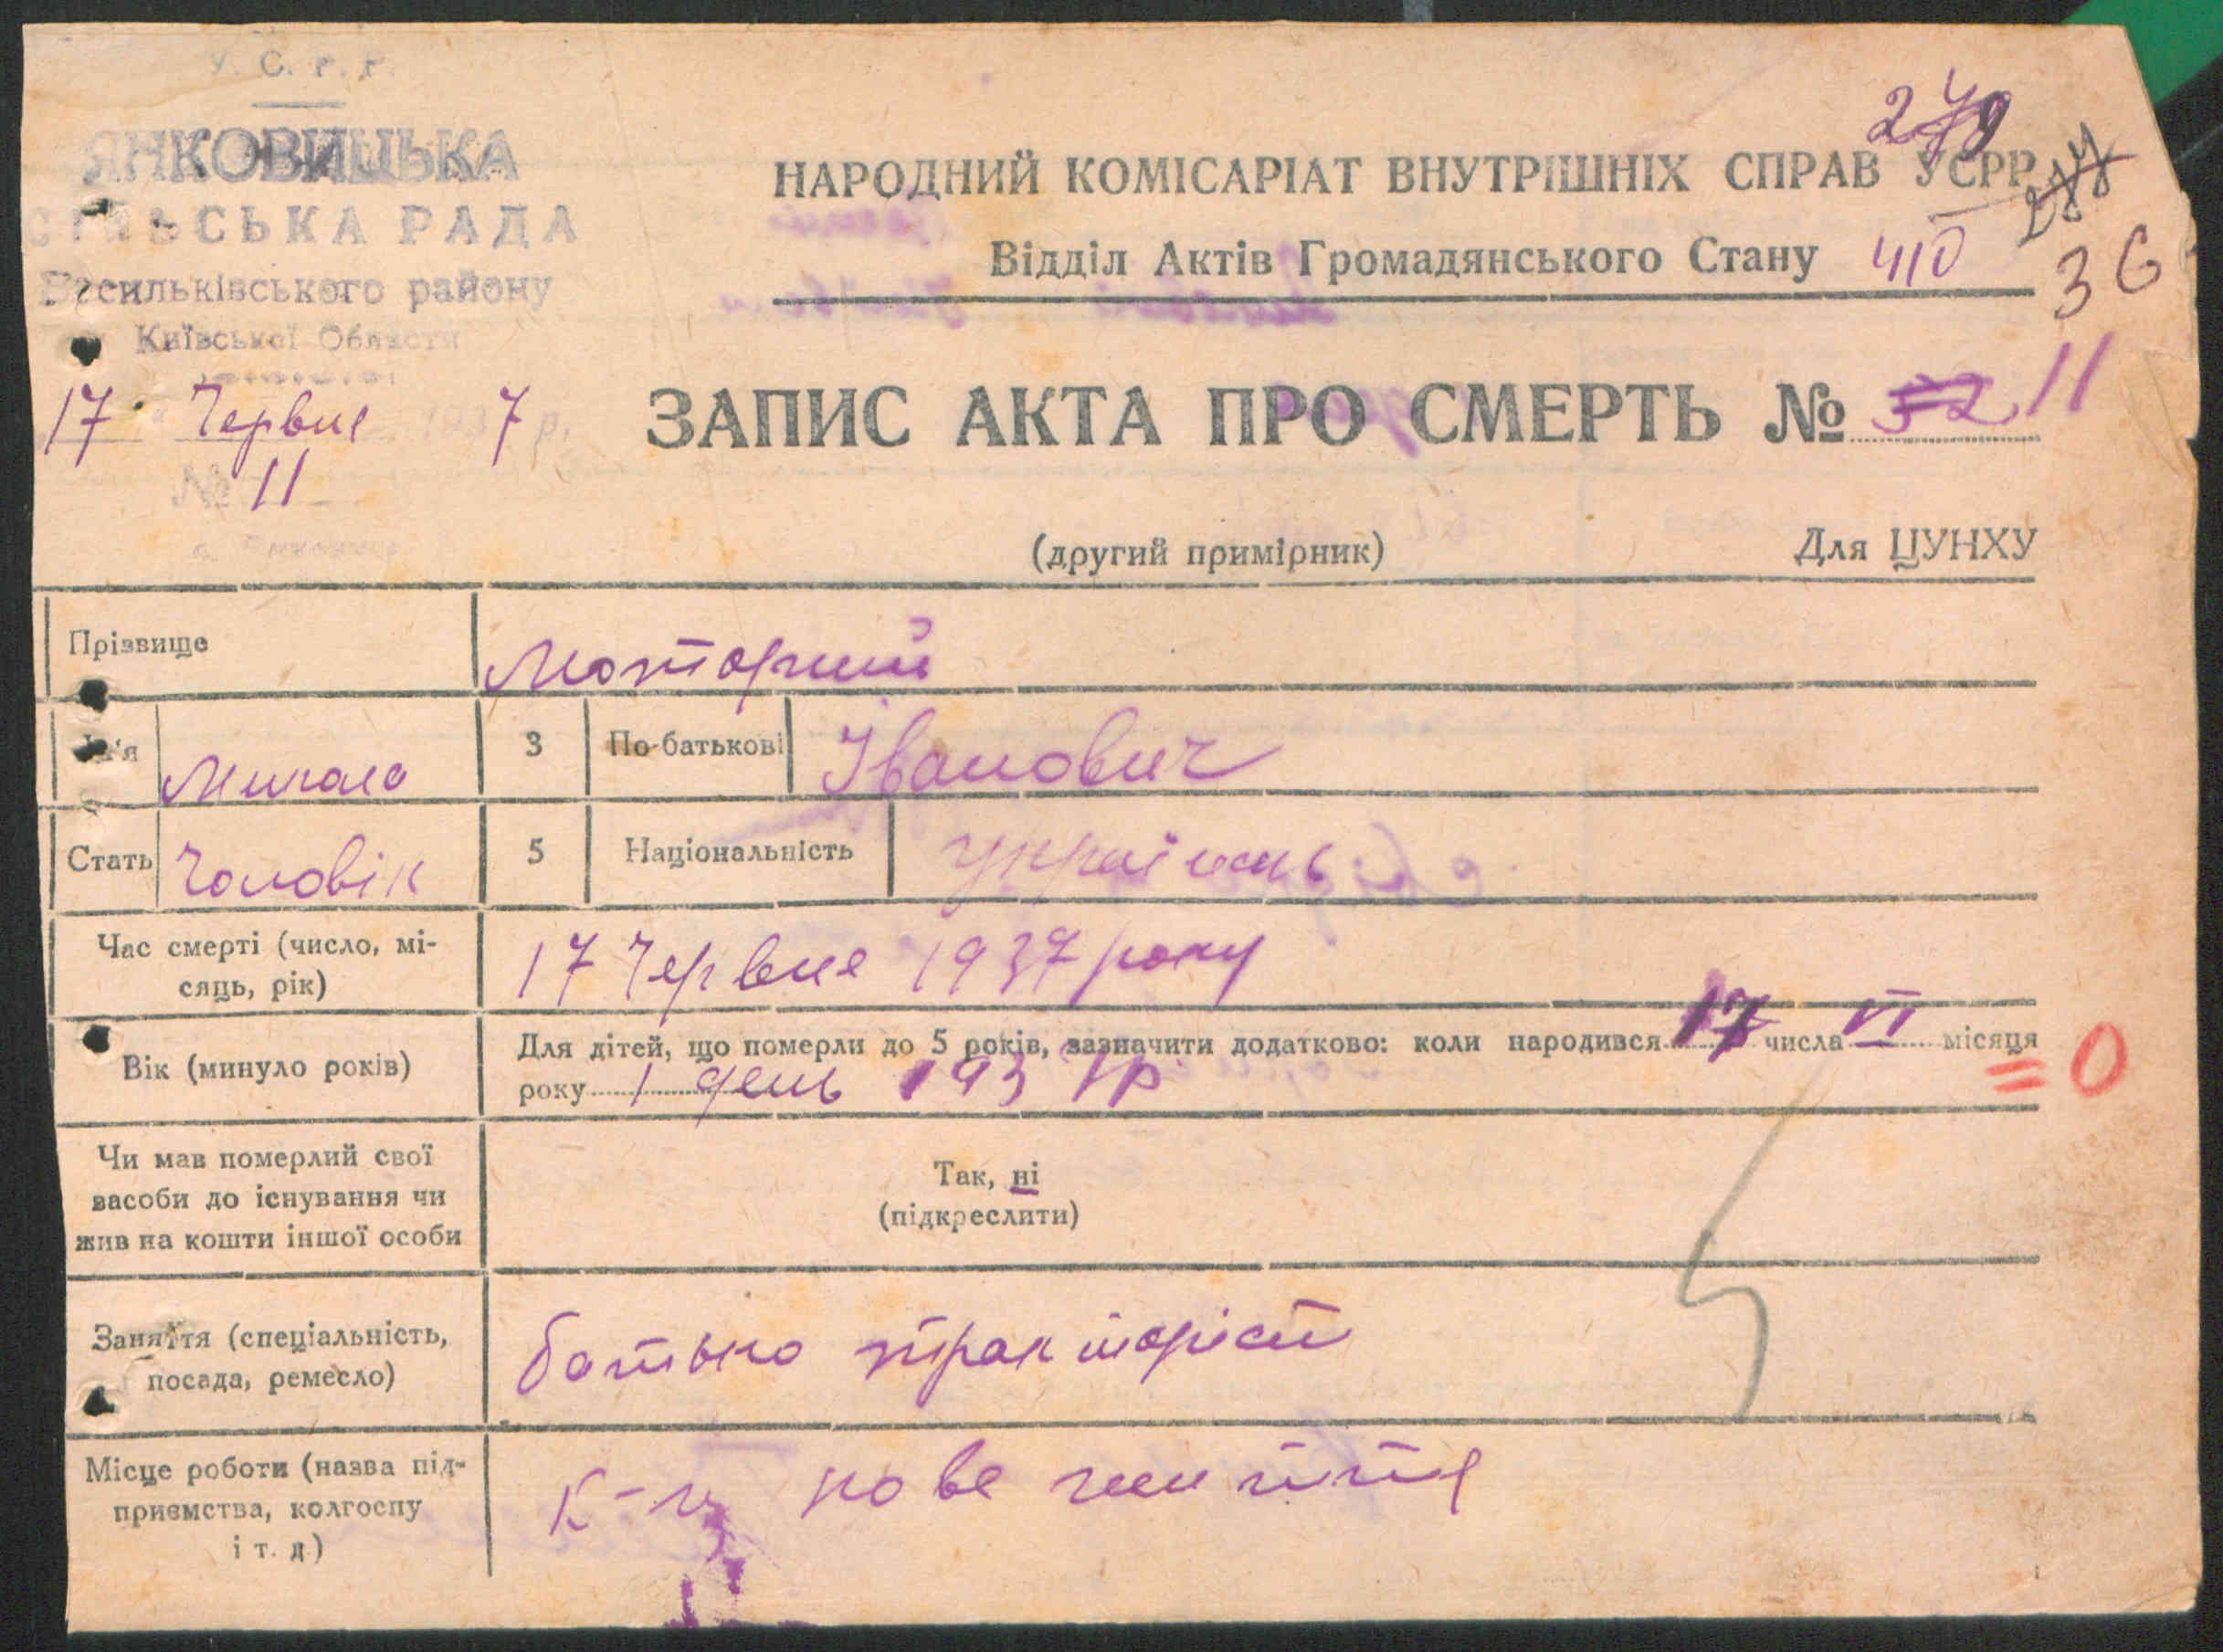 У. С. Р. Р.
ЯНКОВИЦЬКА
СІЛЬСЬКА РАДА
Васильківського району
Київської Області
17 Червня 1937 р.
№ 11
НАРОДНИЙ КОМІСАРІАТ ВНУТРІШНІХ СПРАВ УСРР
Відділ Актів Громадянського Стану 410
36
ЗАПИС АКТА ПРО СМЕРТЬ № 52 11
(другий примірник) Для ЦУНХУ
Прізвище Моторний
Ім'я Микола 3 По-батькові Іванович
Стать Чоловік 5 Національність Українець
Час смерті (число, мі-
сяць, рік) 17 Червня 1937 року
Вік (минуло років) Для дітей, що померли до 5 років, зазначити додатково: коли народився 17 числа VI місяця
року 1 день 1937 р. = 0
Чи мав померлий свої
засоби до існування чи
жив на кошти іншої особи
Так, ні
(підкреслити)
Заняття (спеціальність,
посада, ремесло) батько тракторіст
Місце роботи (назва під-
приємства, колгоспу
і т. д.) к-п нове життя